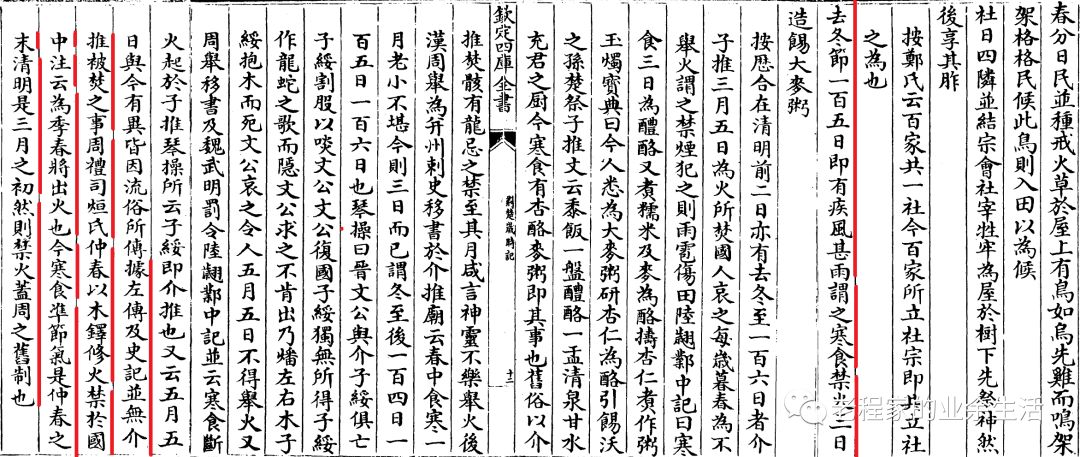 春分日民並種戒火草於屋上有鳥如烏先雞而鳴架
架格格民候此鳥則入田以為候
社日四隣並結宗會社宰牲牢為屋於樹下先祭神然
後享其胙
按鄭氏云百家共一社今百家所立社宗即共立社
之為也
去冬節一百五日即有疾風甚雨謂之寒食禁火三日
造餳大麥粥
按厯合在清明前二日亦有去冬至一百六日者介
子推三月五日為火所焚國人哀之每歳暮春為不
舉火謂之禁煙犯之則雨雹傷田陸翽鄴中記曰寒
食三日為醴酪又煮糯米及麥為酪擣杏仁煮作粥
玉燭寶典曰今人悉為大麥粥研杏仁為酪引餳沃
之孫楚祭子推文云黍飯一盤醴酪一盂清泉甘水
充君之厨今寒食有杏酪麥粥即其事也舊俗以介
欽定四庫全書
荆楚歳時記
十二
推焚骸有龍忌之禁至其月咸言神靈不樂舉火後
漢周舉為并州刺史移書於介推廟云春中食寒一
月老小不堪今則三日而已謂冬至後一百四日一
百五日一百六日也琴操曰晉文公與介子綏俱亡
子綏割股以啖文公文公復國子綏獨無所得子綏
作龍蛇之歌而隠文公求之不肯出乃燔左右木子
綏抱木而死文公哀之令人五月五日不得舉火又
周舉移書及魏武明罰令陸翽鄴中記並云寒食斷
火起於子推琴操所云子綏即介推也又云五月五
日與今有異皆因流俗所傳據左傳及史記並無介
推被焚之事周禮司烜氏仲春以木鐸修火禁於國
中注云為季春將出火也今寒食準節氣是仲春之
末清明是三月之初然則禁火蓋周之舊制也
老程家的业余生活